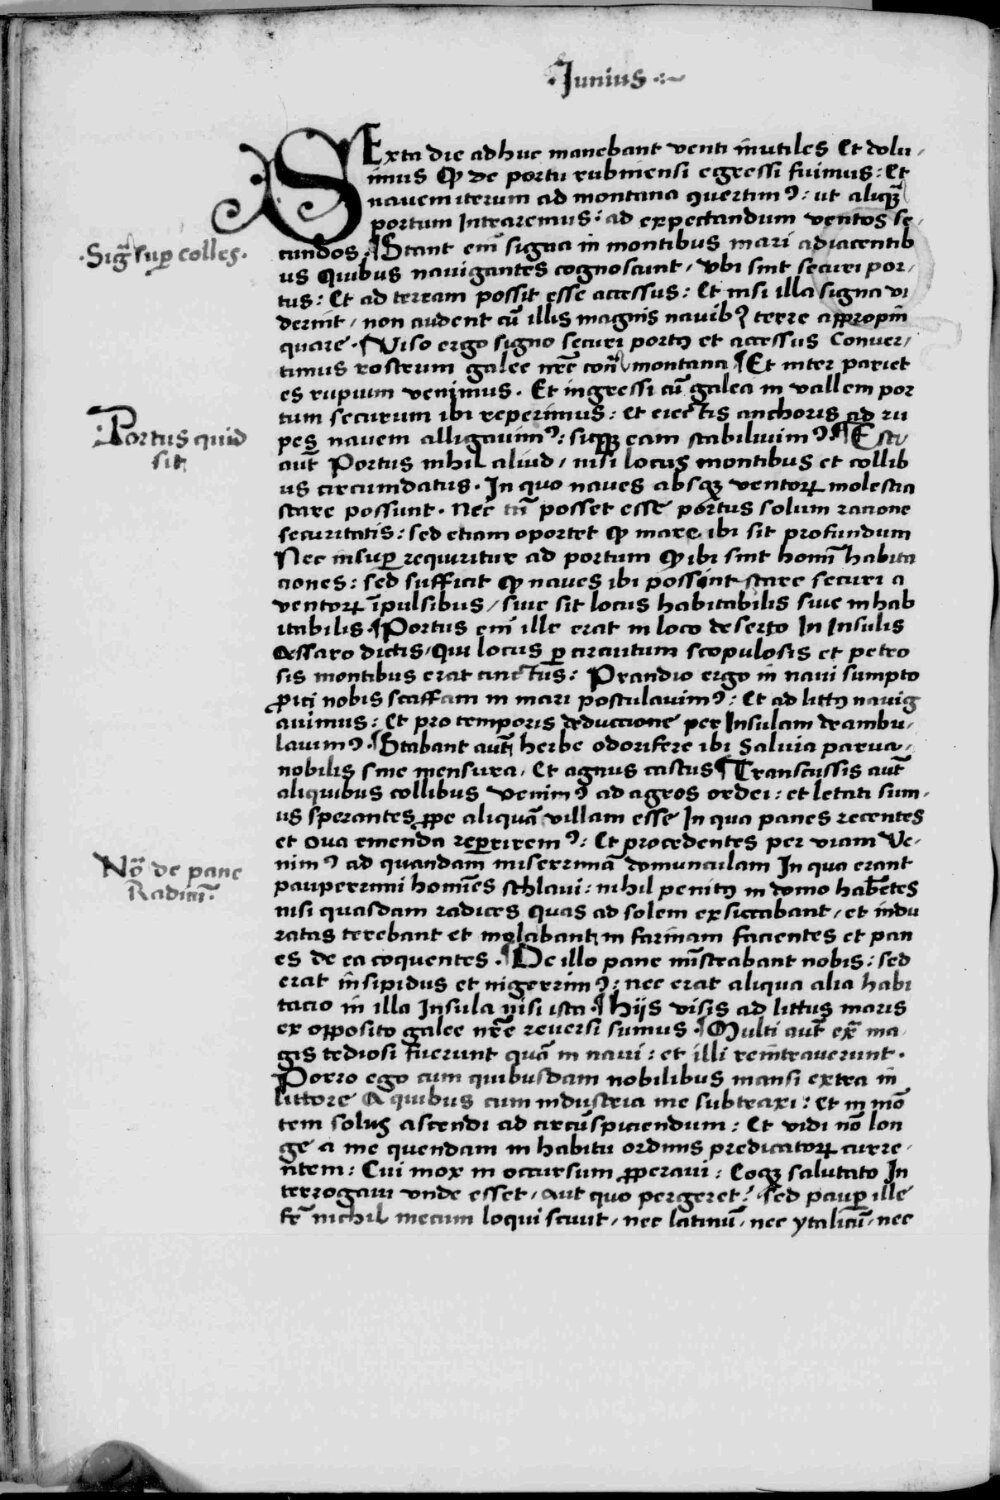 ·Junius·:~
SExta die adhuc manebant venti inutiles Et dolu,
imus qp de portu rubinensi egressi fuimus: Et
navem iterum ad montana qvertimꝰ: ut aliqꝫ
portum Intraremus: ad expectandum ventos se,
·Sig̃ sup colles·
cundos ¶Stant em̄ signa in montibus mari adiacentib
us Quibus navigantes cognoscunt, vbi sint securi por,
tus: Et ad terram possit esse accessus: Et nisi illa signa vi
derint, non audent cū illis magnis navibꝰ terre appropin
quare· Viso ergo signo securi portꝰ et accessus Conver,
timus rostrum galee nr̄e cont̄ montana ¶Et inter pariet
es rupium venimus· Et ingressi cū galea in vallem por
tum securum ibi reperimus: et eiectis anchoris ad ru
Portus quid
sit
pes navem alligavimꝰ: sicqꝫ eam stabilivimꝰ ¶Est
aut̄ Portus nihil aliud, nisi locus montibus et collib
us circumdatus· In quo naves absqꝫ ventoꝝ molestia
stare possunt· Nec tn̄ posset esse portus solum racione
securitatis: sed etiam oportet qp mare ibi sit profundum
Nec insuꝑ requiritur ad portum qp ibi sint homī habita
ciones: sed sufficit qp naves ibi possint stare securi a
ventoꝝ īpulsibus, sive sit locus habitabilis sive inhab
itabilis ¶Portus em̄ ille erat in loco deserto In Insulis
Cessaro dictis, Qui locus ꝑ circuitum scopulosis et petro
sis montibus erat cinctus: Prandio ergo in navi sumpto
ꝓici nobis scaffam in mari postulavimꝰ: Et ad littꝰ navig
avimus: Et pro temporis deduccione per Insulam deambu,
lavimꝰ ¶Stabant aut̄ herbe odorifere ibi Salvia parva,
nobilis sine mensura, Et agnus castus ¶Transcussis aut̄
aliquibus collibus venimꝰ ad agros ordei: et letati sum,
us sperantes ꝓpe aliquā villam esse In qua panes recentes
et ova emenda reperiremꝰ: Et procedentes per viam Ve,
Nō de pane
Radicū
nimꝰ ad quandam miserrimā domunculam In qua erant
pauperrimi homīes schlavi: nihil penitꝰ in domo hab̄etes
nisi quasdam radices Quas ad solem exsiccabant, et indu
ratas terebant et molabant in farinam facientes et pan
es de ea coquentes ¶De illo pane mīstrabant nobis: sed
erat insipidus et nigerrimꝰ: nec erat aliqua alia habi
tacio in illa Insula nisi ista ¶hijs visis ad littus maris
ex opposito galee nr̄e reversi sumus ¶Multi aut̄ ex̄ ma
gis tediosi fuerunt quā in navi: et illi reintraverunt·
Porro ego cum quibusdam nobilibus mansi extra in
littore A quibus cum industria me subtraxi: Et in mō
tem solus ascendi ad circūspiciendum: Et vidi nō lon
ge a me quendam in habitu ordinis predicatoꝝ curre,
ntem: Cui mox in occursum ꝓperavi: Eoqꝫ salutato In
terrogavi vnde esset, aut quo pergeret: Sed pauꝑ ille
fr̄ nichil mecum loqui scivit, nec latinū, nec ytalicū, nec